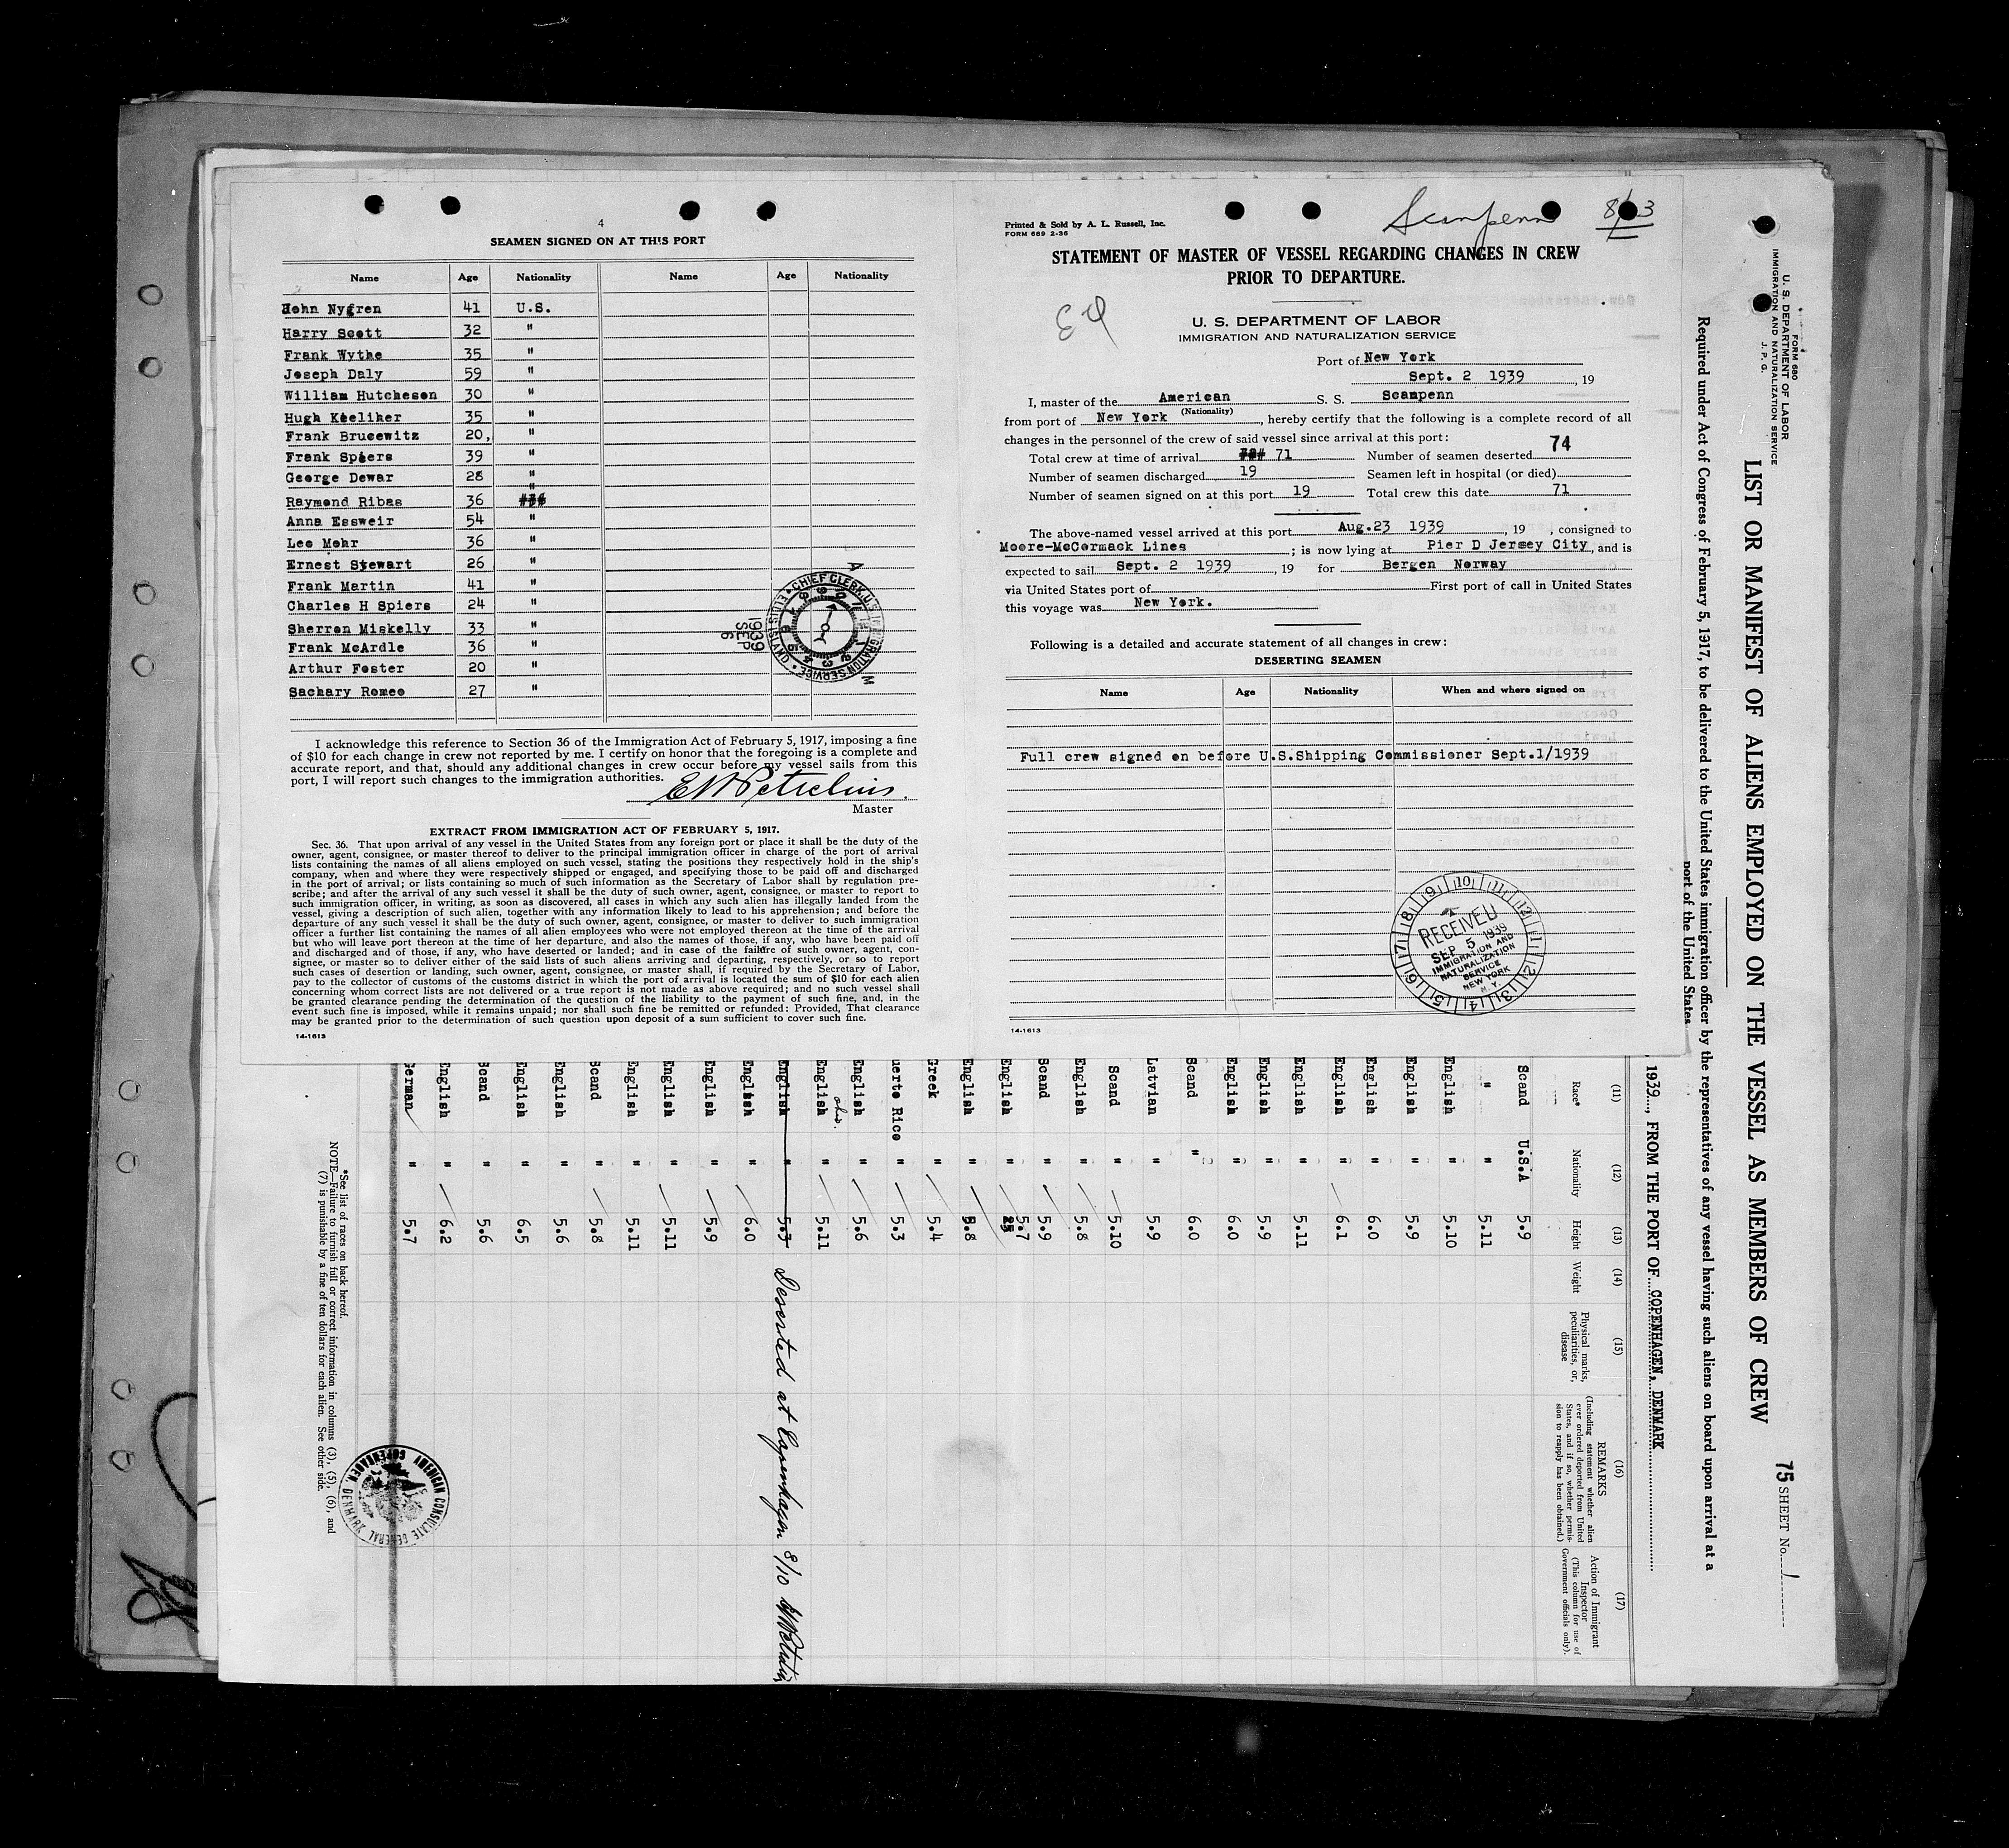 4
SEAMEN SIGNED ON AT THIS PORT
Name Age Nationality Name Age Nationality
John Nygren 41 U.S.
Harry Scott 32 "
Frank Wythe 35 "
Joseph Daly 59 "
William Hutcheson 30 "
Hugh Keeliher 35 "
Frank Brucewitz 20, "
Frank Spiers 39 "
George Dewar 28 "
Raymond Ribas 36 "
Anna Essweir 54 "
Leo Mohr 36 "
Ernest Stewart 26 "
Frank Martin 41 "
Charles H Spiers 24 "
Sherron Miskelly 33 "
Frank McArdle 36 "
Arthur Foster 20 "
Sachary Romeo 27 "
CHIEF CLERK, U.S. IMMIGRATION SERVICE • ELLIS ISLAND •
1939 SEP 6
A M
I acknowledge this reference to Section 36 of the Immigration Act of February 5, 1917, imposing a fine
of $10 for each change in crew not reported by me. I certify on honor that the foregoing is a complete and
accurate report, and that, should any additional changes in crew occur before my vessel sails from this
port, I will report such changes to the immigration authorities.
Master
EXTRACT FROM IMMIGRATION ACT OF FEBRUARY 5, 1917.
Sec. 36. That upon arrival of any vessel in the United States from any foreign port or place it shall be the duty of the
owner, agent, consignee, or master thereof to deliver to the principal immigration officer in charge of the port of arrival
lists containing the names of all aliens employed on such vessel, stating the positions they respectively hold in the ship's
company, when and where they were respectively shipped or engaged, and specifying those to be paid off and discharged
in the port of arrival; or lists containing so much of such information as the Secretary of Labor shall by regulation pre-
scribe; and after the arrival of any such vessel it shall be the duty of such owner, agent, consignee, or master to report to
such immigration officer, in writing, as soon as discovered, all cases in which any such alien has illegally landed from the
vessel, giving a description of such alien, together with any information likely to lead to his apprehension; and before the
departure of any such vessel it shall be the duty of such owner, agent, consignee, or master to deliver to such immigration
officer a further list containing the names of all alien employees who were not employed thereon at the time of the arrival
but who will leave port thereon at the time of her departure, and also the names of those, if any, who have been paid off
and discharged and of those, if any, who have deserted or landed; and in case of the failure of such owner, agent, con-
signee, or master so to deliver either of the said lists of such aliens arriving and departing, respectively, or so to report
such cases of desertion or landing, such owner, agent, consignee, or master shall, if required by the Secretary of Labor,
pay to the collector of customs of the customs district in which the port of arrival is located the sum of $10 for each alien
concerning whom correct lists are not delivered or a true report is not made as above required; and no such vessel shall
be granted clearance pending the determination of the question of the liability to the payment of such fine, and, in the
event such fine is imposed, while it remains unpaid; nor shall such fine be remitted or refunded: Provided, That clearance
may be granted prior to the determination of such question upon deposit of a sum sufficient to cover such fine.
14-1613
Printed & Sold by A. L. Russell, Inc.
FORM 689 2-36
Scanpenn
STATEMENT OF MASTER OF VESSEL REGARDING CHANGES IN CREW
PRIOR TO DEPARTURE.
U. S. DEPARTMENT OF LABOR
IMMIGRATION AND NATURALIZATION SERVICE
Port of New York
Sept. 2 1939, 19
I, master of the American S. S. Scanpenn
(Nationality)
from port of New York, hereby certify that the following is a complete record of all
changes in the personnel of the crew of said vessel since arrival at this port:
74
Total crew at time of arrival 71 Number of seamen deserted
Number of seamen discharged 19 Seamen left in hospital (or died)
Number of seamen signed on at this port 19 Total crew this date 71
The above-named vessel arrived at this port Aug.23 1939, 19 , consigned to
Moore-McCormack Lines ; is now lying at Pier D Jersey City, and is
expected to sail Sept. 2 1939, 19 for Bergen Norway
via United States port of First port of call in United States
this voyage was New York.
Following is a detailed and accurate statement of all changes in crew:
DESERTING SEAMEN
Name Age Nationality When and where signed on
Full crew signed on before U.S.Shipping Commissioner Sept.1/1939
RECEIVED
SEP 5 1939
IMMIGRATION AND
NATURALIZATION
SERVICE
NEW YORK
N. Y.
14-1613
FORM 680
U. S. DEPARTMENT OF LABOR
IMMIGRATION AND NATURALIZATION SERVICE
J. P. G.
75 SHEET No. 1
LIST OR MANIFEST OF ALIENS EMPLOYED ON THE VESSEL AS MEMBERS OF CREW
Required under Act of Congress of February 5, 1917, to be delivered to the United States immigration officer by the representatives of any vessel having such aliens on board upon arrival at a
port of the United States
, 1939, FROM THE PORT OF COPENHAGEN, DENMARK
(11) (12) (13) (14) (15) (16) (17)
Race* Nationality Height Weight Physical marks, peculiarities, or, disease
REMARKS (Including statement whether alien ever ordered deported from United States, and if so, whether permission to reapply has been obtained.)
Action of Immigrant Inspector (This column for use of Government officials only).
Scand U.S.A 5.9
" " 5.11
English " 5.10
English " 5.9
English " 6.0
English " 6.1
English " 5.11
English " 5.9
English " 6.0
Scand " 6.0
Latvian " 5.9
Scand " 5.10
English " 5.8
Scand " 5.9
English " 5.7
English " 5.8
Greek " 5.4
uerto Rice " 5.3
English " 5.6
English " 5.11
English " 5.3 Deserted at Copenhagen 8/10
English " 6.0
English " 5.9
English " 5.11
English " 5.11
Scand " 5.8
English " 5.6
English " 6.5
Scand " 5.6
English " 6.2
German " 5.7
*See list of races on back hereof.
NOTE—Failure to furnish full or correct information in columns (3), (5), (6), and
(7) is punishable by a fine of ten dollars for each alien. See other side.
AMERICAN CONSULATE GENERAL
COPENHAGEN, DENMARK